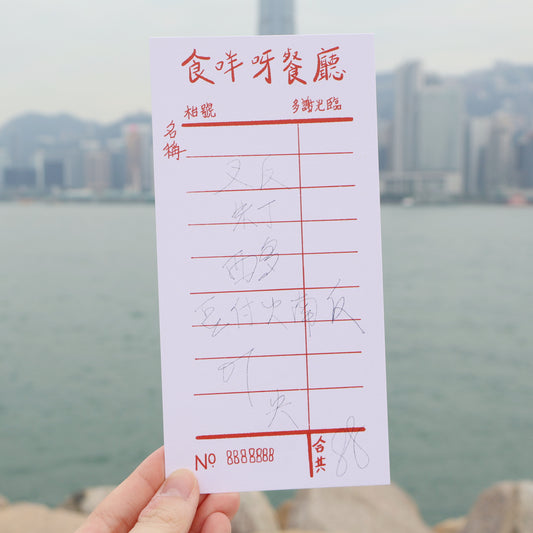 食咩呀餐廳
枱號 多謝光臨
名稱
叉反
米丁
西多
豆付火南反
叮
央
No 8888888
合共 88